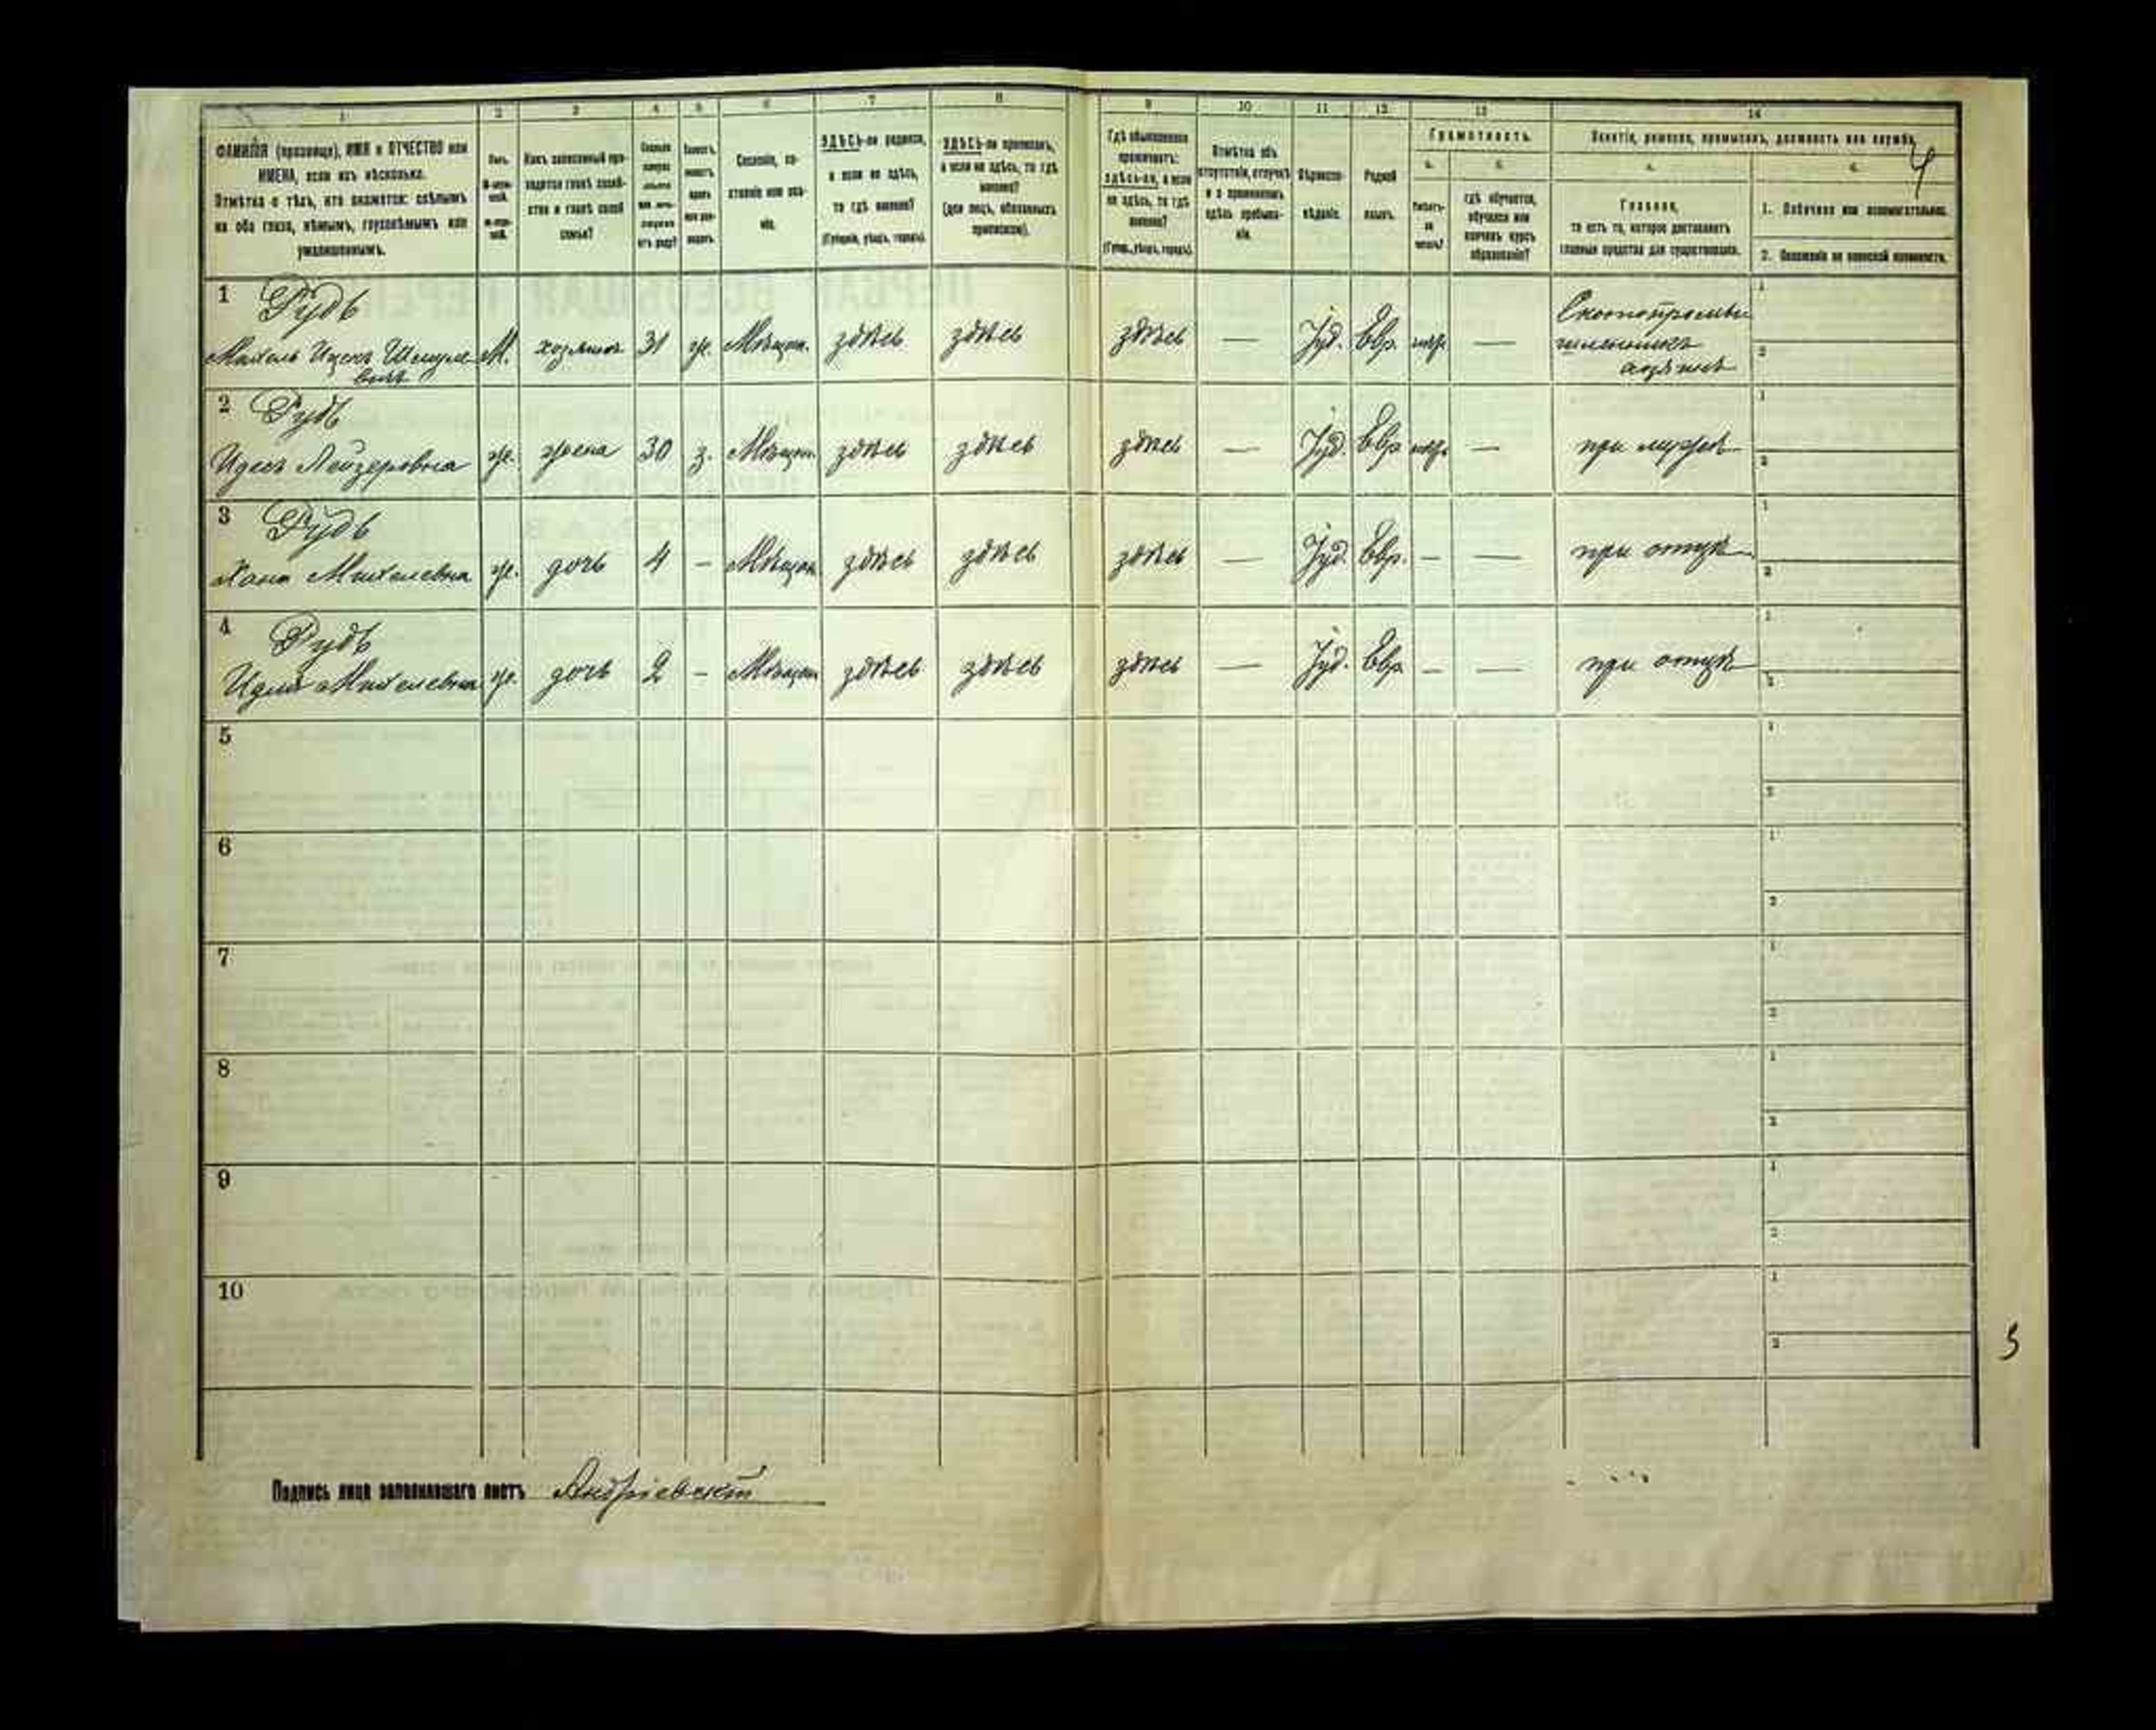 1 2 3 4 5 6 7 8 9 10 11 12 13 14
ФАМИЛІЯ (прозвище), ИМЯ и ОТЧЕСТВО или
ИМЕНА, если ихъ нѣсколько.
Отмѣтка о тѣхъ, кто окажется: слѣпымъ
на оба глаза, нѣмымъ, глухонѣмымъ или
умалишеннымъ.
Полъ.
М-муж-
ской.
Ж-жен-
скій.
Какъ записанный при-
ходится главѣ хозяй-
ства и главѣ своей
семьи?
Сколько
Холостъ,
женатъ,
вдовъ
или раз-
веденъ.
Сословіе, со-
стояніе или зва-
ніе.
ЗДѢСЬ-ли родился,
а если не здѣсь,
то гдѣ именно?
(Губернія, уѣздъ, городъ).
ЗДѢСЬ-ли приписанъ,
а если не здѣсь, то гдѣ
именно?
(для лицъ, обязанныхъ
припискою).
Гдѣ обыкновенно
проживаетъ:
здѣсь-ли, а если
не здѣсь, то гдѣ
именно?
(Губ., уѣздъ, городъ).
Отмѣтка объ
отсутствіи, отлучкѣ
и о временномъ
здѣсь пребыва-
ніи.
Вѣроиспо-
вѣданіе.
Родной
языкъ.
Грамотность.
а. б.
Умѣетъ-
ли
читать?
гдѣ обучается,
обучался или
кончилъ курсъ
образованія?
Занятіе, ремесло, промыселъ, должность или служба.
4
а. б.
Главное,
то есть то, которое доставляетъ
главныя средства для существованія.
1. Побочное или вспомогательное.
2. Положеніе по воинской повинности.
1 Рудь
Михель Ицекъ Шмуле
вичъ
М. хозяинъ 31 ж. Мѣщан. здѣсь здѣсь здѣсь — Іуд. Евр. —
Скотопромы
шленникъ
хозяинъ
1
2
2 Рудь
Идесъ Лейзеровна ж. жена 30 з. Мѣщан. здѣсь здѣсь здѣсь — Іуд. Евр. — при мужѣ
1
2
3 Рудь
Хана Михелевна ж. дочь 4 – Мѣщан здѣсь здѣсь здѣсь — Іуд. Евр. – — при отцѣ
1
2
4 Рудь
Михелевна ж. дочь 2 – Мѣщан здѣсь здѣсь здѣсь — Іуд. Евр. – — при отцѣ
1
2
5
1
2
6
1
2
7
1
2
8
1
2
9
1
2
10
1
2
5
Подпись лица заполнявшаго листъ Андріевскій